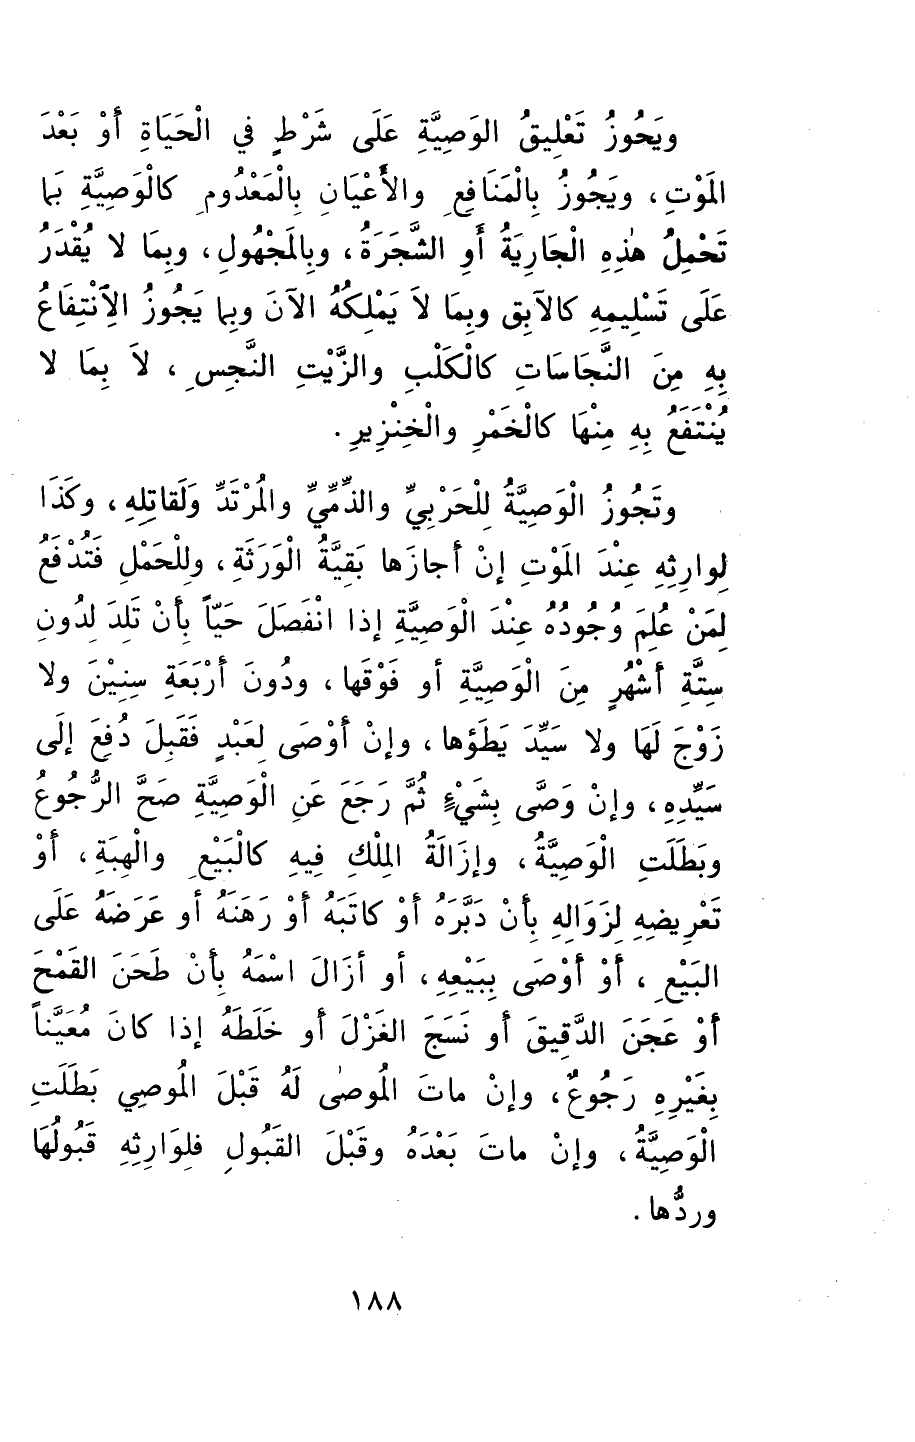 ويَجُوزُ تَعْلِيقُ الوَصِيَّةِ عَلَى شَرْطٍ في الْحَيَاةِ أَوْ بَعْدَ
المَوْتِ، ويَجُوزُ بِالْمَنَافِعِ والأَعْيَانِ بِالْمَعْدُومِ كالْوَصِيَّةِ بَما
تَحْمِلُ هٰذِهِ الْجَارِيَةُ أَوِ الشَّجَرَةُ، وبِالمَجْهُولِ، وبِمَا لا يُقْدَرُ
عَلَى تَسْلِيمِهِ كالآبِق وبِمَا لاَ يَمْلِكُهُ الآنَ وبِما يَجُوزُ الاِنْتِفَاعُ
بِهِ مِنَ النَّجَاسَاتِ كالْكَلْبِ والزَّيْتِ النَّجِسِ، لاَ بِمَا لا
يُنْتَفَعُ بِهِ مِنْهَا كالْخَمْرِ والْخِنْزِيرِ.
وتَجُوزُ الْوَصِيَّةُ لِلْحَرْبِيِّ والذِّمِّيِّ والمُرْتَدِّ وَلَقاتِلِهِ، وكَذَا
لِوارِثِهِ عِنْدَ المَوْتِ إنْ أَجازَها بَقِيَّةُ الْوَرَثَةِ، ولِلْحَمْلِ فَتُدْفَعُ
لِمَنْ عُلِمَ وُجُودُهُ عِنْدَ الْوَصِيَّةِ إذا انْفَصَلَ حَيّاً بِأَنْ تَلِدَ لِدُونِ
سِتَّةِ أَشْهُرٍ مِنَ الْوَصِيَّةِ أو فَوْقَها، ودُونَ أَرْبَعَةِ سِنِيْنَ ولا
زَوْجَ لَهَا ولا سَيِّدَ يَطَؤها، وإنْ أَوْصَى لِعَبْدٍ فَقَبِلَ دُفِعَ إلَى
سَيِّدِهِ، وإنْ وَصَّى بِشَيْءٍ ثُمَّ رَجَعَ عَنِ الْوَصِيَّةِ صَحَّ الرُّجُوعُ
وبَطَلَتِ الْوَصِيَّةُ، وإزَالَةُ المِلْكِ فِيهِ كالْبَيْعِ والْهِبَةِ، أَوْ
تَعْرِيضِهِ لِزَوَالِهِ بِأَنْ دَبَّرَهُ أَوْ كاتَبَهُ أَوْ رَهَنَهُ أو عَرَضَهُ عَلَى
البَيْعِ، أَوْ أَوْصَى بِبَيْعِهِ، أو أزَالَ اسْمَهُ بِأَنْ طَحَنَ القَمْحَ
أَوْ عَجَنَ الدَّقِيقَ أو نَسَجَ الغَزْلَ أو خَلَطَهُ إذا كانَ مُعَيَّناً
بِغَيْرِهِ رَجُوعٌ، وإنْ ماتَ المُوصٰى لَهُ قَبْلَ المُوصِي بَطَلَتِ
الْوَصِيَّةُ، وإنْ ماتَ بَعْدَهُ وقَبْلَ القَبُولِ فلِوَارِثِهِ قَبُولُهَا
وردُّها.
١٨٨